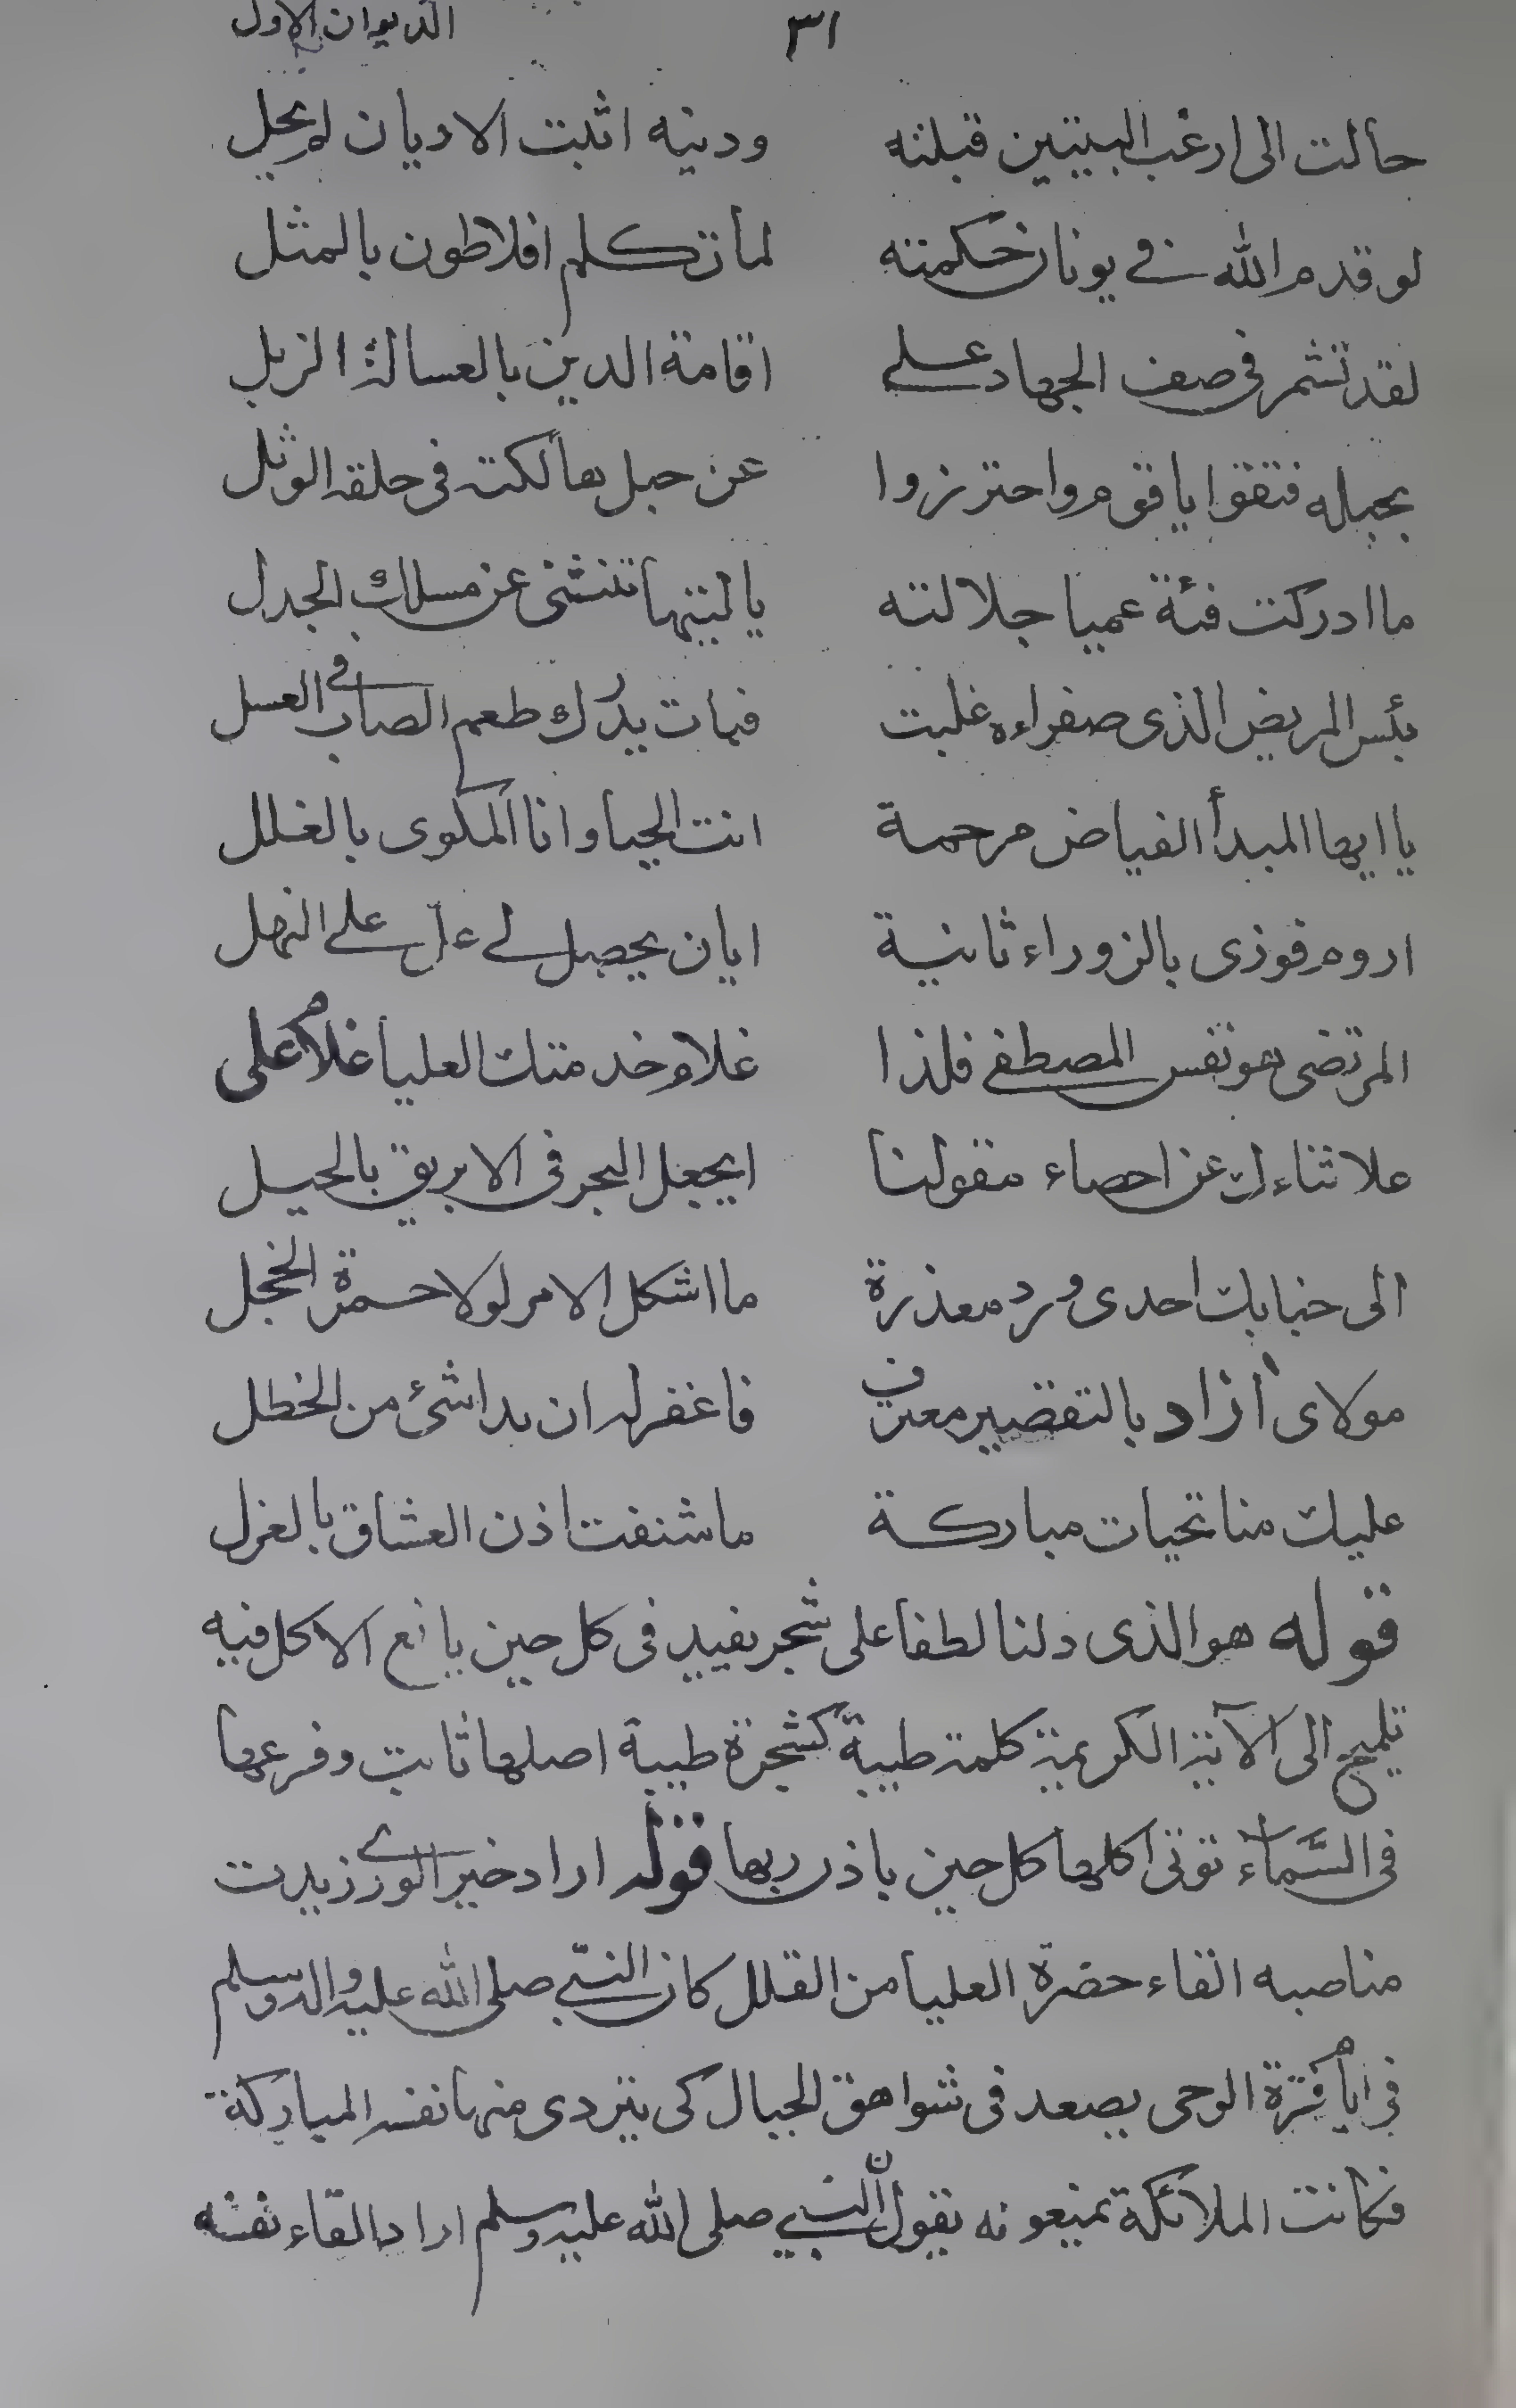 ٣١ الديوان الاول
حالت الى ارغب البيتين قبلته ودينه اثبت الاديان لم يحل
لو قدم الله في يونان حكمته لما تكلم افلاطون بالمثل
لقد تشمر في صف الجهاد على اقامة الدين بالعسالة الزبل
بحبله فثقوا يا قوم واحترزوا عن حبل هالكة في حلقه الوثل
ما ادركت فئة عميا جلالته يا ليتها تنثني عن مسلك الجدل
بئس المريض الذي صفراءه غلبت فمات يدرك طعم الصاب في العسل
يا ايها المبدأ الفياض مرحمة انت الحيا وانا المكوى بالغلل
اروم فوزى بالزوراء ثانية ايان يحصل لي عل على النهل
المرتضى هو نفس المصطفى فلذا غلام خدمتك العليا غلام على
علا ثناءك عن احصاء مقولنا ايجعل البحر في الابريق بالحيل
الى جنابك احدى ورد معذرة ما اشكل الامر لولا حمرة الخجل
مولاى آزاد بالتقصير معترف فاغفر له ان بدا شئ من الخطل
عليك منا تحيات مباركة ما شنفت اذن العشاق بالغزل
قوله هو الذى دلنا لطفا على شجر يفيد فى كل حين يانع الاكل فيه
تلميح الى الآية الكريمة كلمة طيبة كشجرة طيبة اصلها ثابت وفرعها
فى السَّماء توتى اكلها كل حين باذن ربها قوله اراد خير الورى زيدت
مناصبه القاء حضرة العليا من القلل كان النبي صلى الله عليه واله وسلم
فى ايام فترة الوحى يصعد فى شواهق الجبال كى يتردى منها نفسه المباركة
فكانت الملائكة تمنعونه يقول ان النبي صلى الله عليه وسلم اراد القاء نفسه